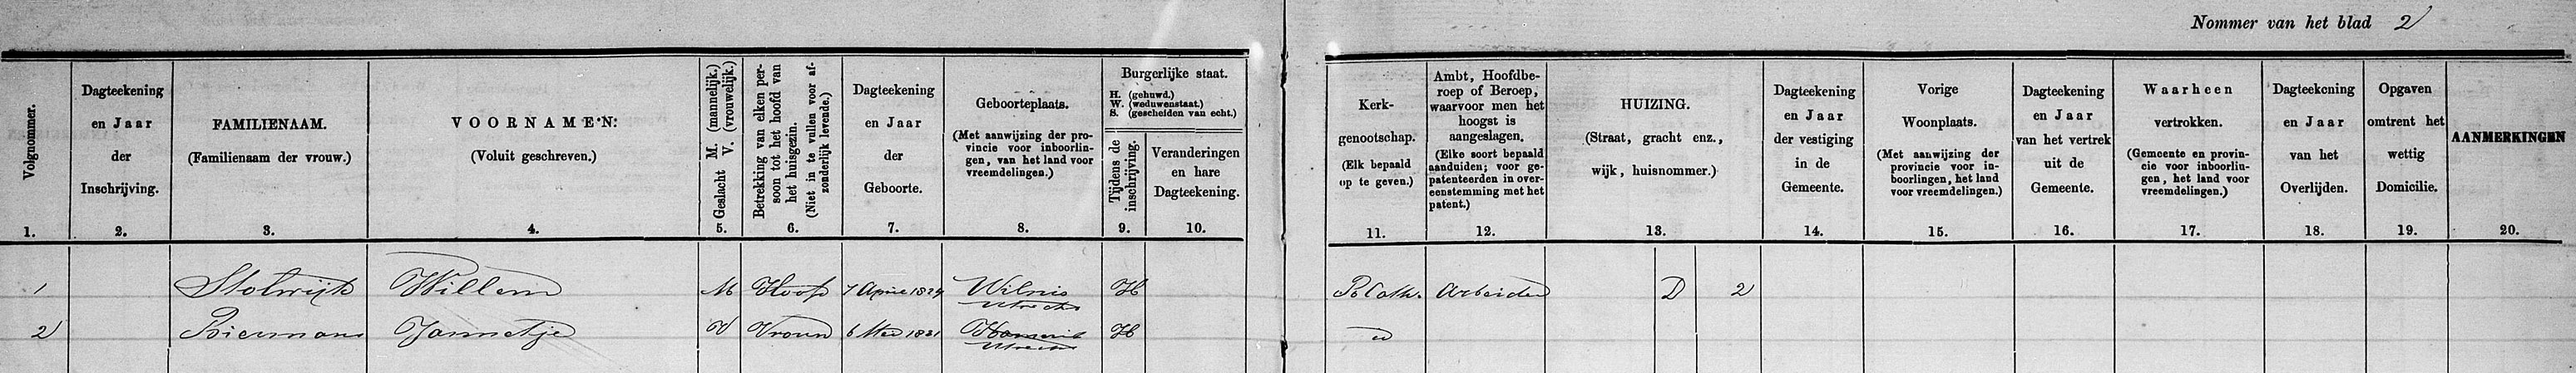 Nommer van het blad 2
Volgnommer.
1.
Dagteekening
en Jaar
der
Inschrijving.
2.
FAMILIENAAM.
(Familienaam der vrouw.)
3.
VOORNAMEN:
(Voluit geschreven.)
4.
Geslacht M. (mannelijk.)
V. (vrouwelijk.)
5.
Betrekking van elken per-
soon tot het hoofd van
het huisgezin.
(Niet in te vullen voor af-
zonderlijk levende.)
6.
Dagteekening
en Jaar
der
Geboorte.
7.
Geboorteplaats.
(Met aanwijzing der pro-
vincie voor inboorlin-
gen, van het land voor
vreemdelingen.)
8.
Burgerlijke staat.
H. (gehuwd.)
W. (weduwenstaat.)
S. (gescheiden van echt.)
Tijdens de
inschrijving.
9.
Veranderingen
en hare
Dagteekening.
10.
Kerk-
genootschap.
(Elk bepaald
op te geven.)
11.
Ambt, Hoofdbe-
roep of Beroep,
waarvoor men het
hoogst is
aangeslagen.
(Elke soort bepaald
aanduiden; voor ge-
patenteerden in over-
eenstemming met het
patent.)
12.
HUIZING.
(Straat, gracht enz.,
wijk, huisnommer.)
13.
Dagteekening
en Jaar
der vestiging
in de
Gemeente.
14.
Vorige
Woonplaats.
(Met aanwijzing der
provincie voor in-
boorlingen, het land
voor vreemdelingen.)
15.
Dagteekening
en Jaar
van het vertrek
uit de
Gemeente.
16.
Waarheen
vertrokken.
(Gemeente en provin-
cie voor inboorlin-
gen, het land voor
vreemdelingen.)
17.
Dagteekening
en Jaar
van het
Overlijden.
18.
Opgaven
omtrent het
wettig
Domicilie.
19.
AANMERKINGEN
20.
1 Stolwijk Willem M Hoofd 7 April 1824 Wilnis H R Cath. Arbeider D 2
Utrecht
2 Biermans Jannetje V Vrouw 6 1821 H
Utrecht